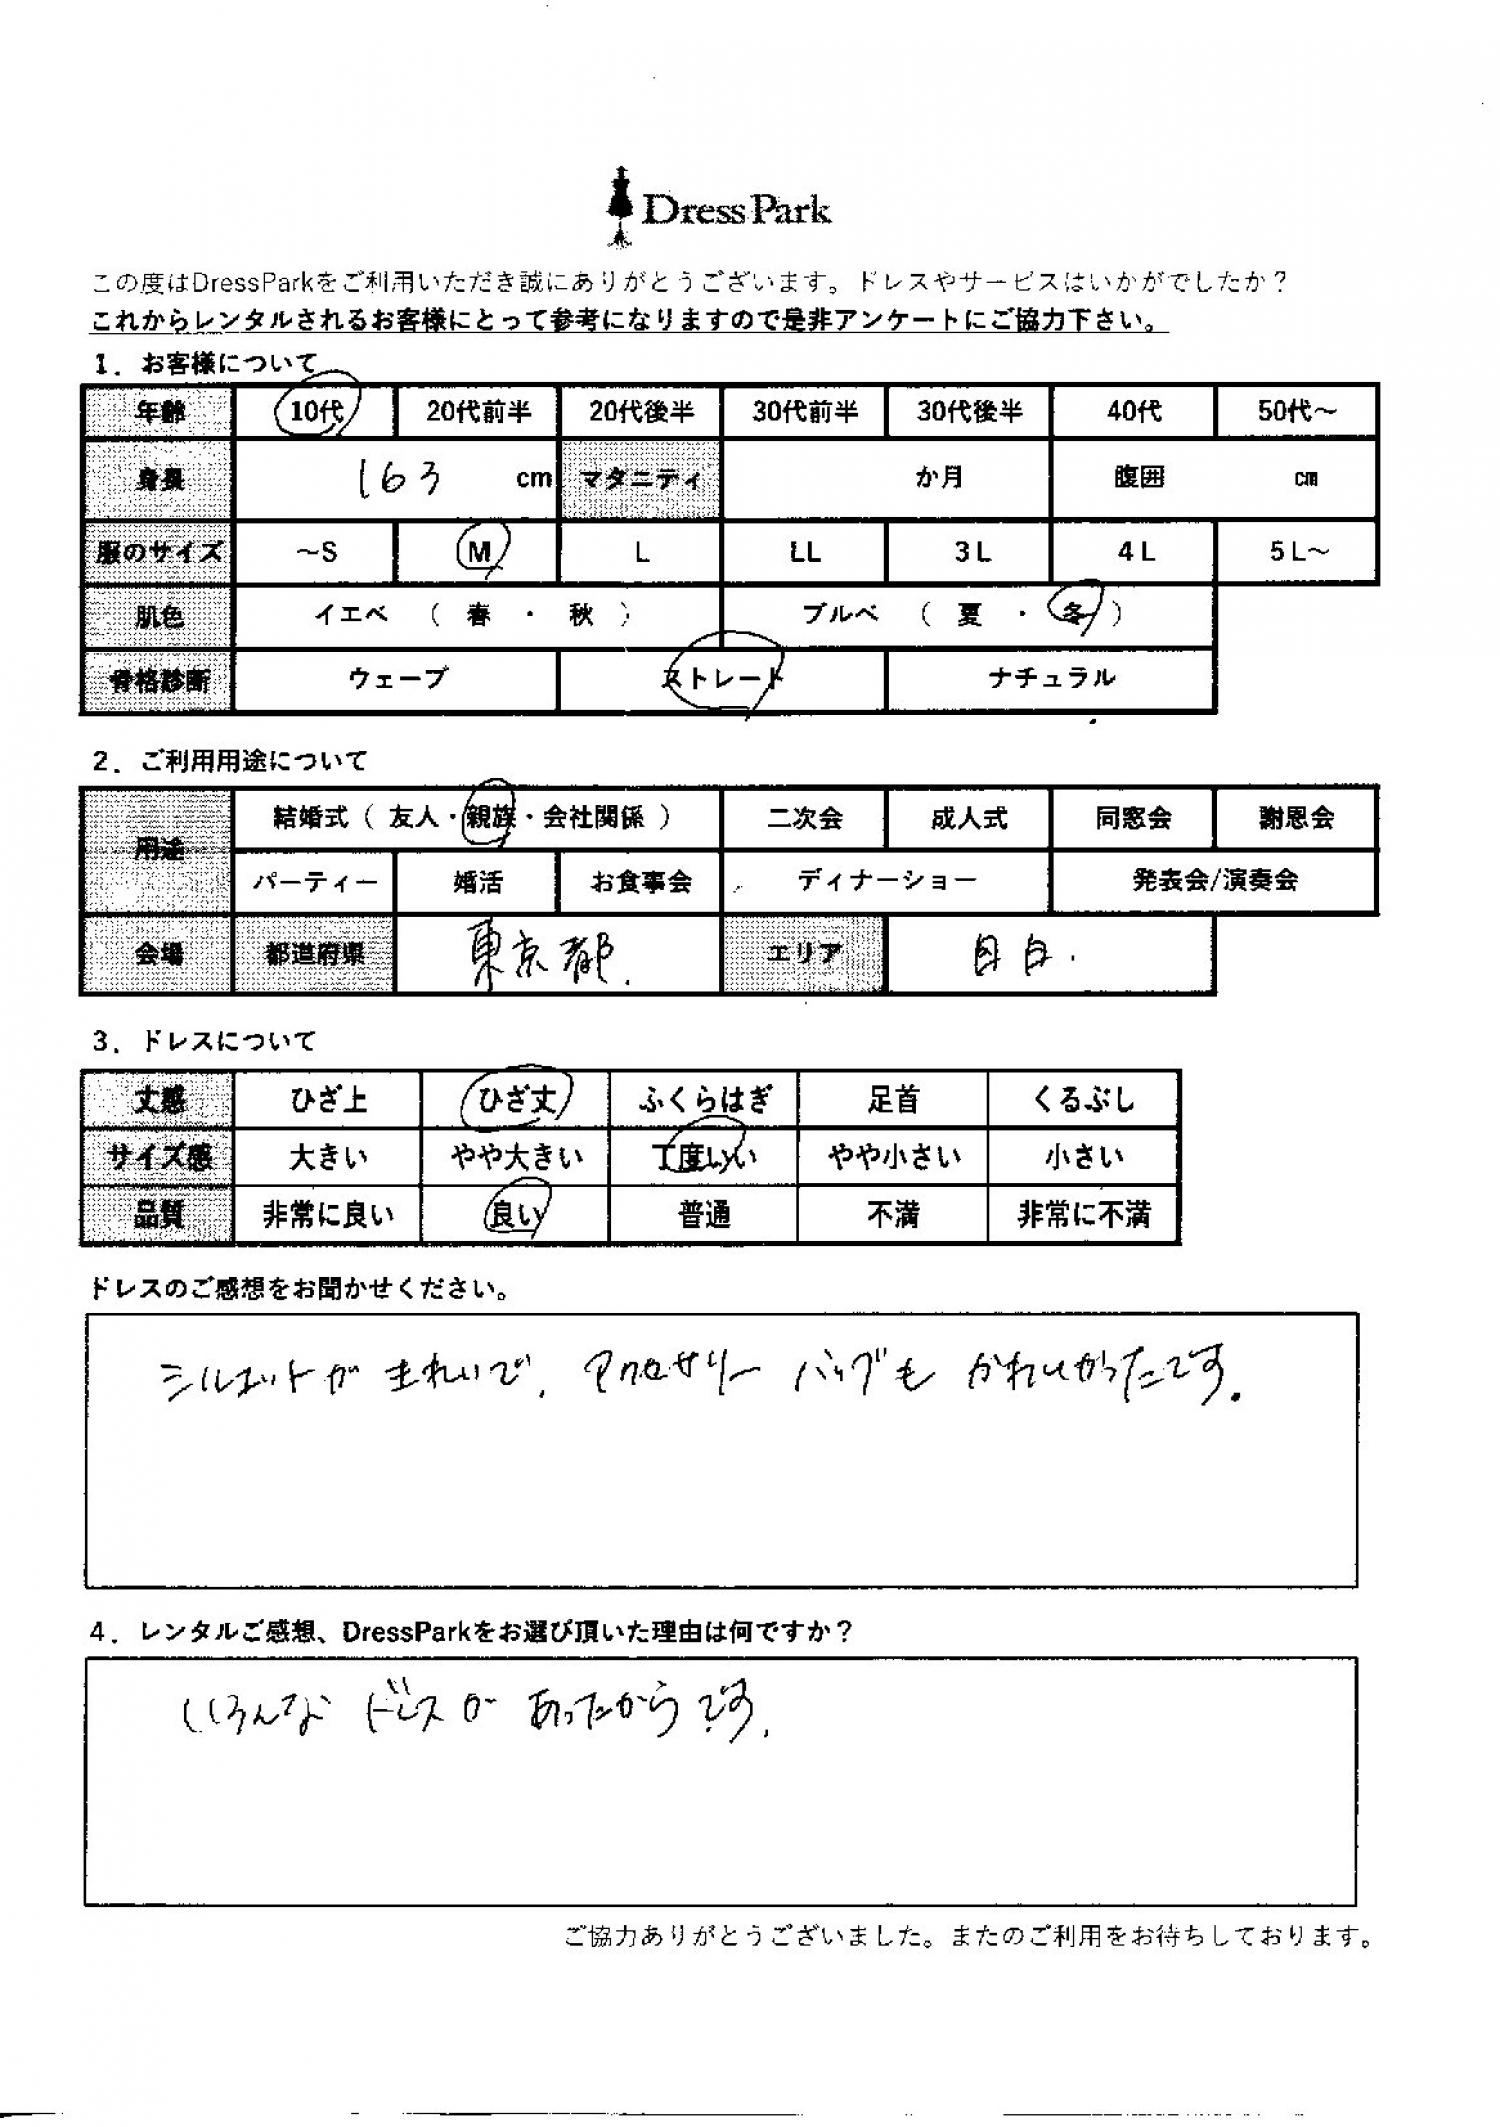 DressPark
この度はDressParkをご利用いただき誠にありがとうございます。ドレスやサービスはいかがでしたか？
これからレンタルされるお客様にとって参考になりますので是非アンケートにご協力下さい。
1．お客様について
年齢 10代 20代前半 20代後半 30代前半 30代後半 40代 50代～
身長 163 cm マタニティ か月 腹囲 cm
服のサイズ ～S M L LL 3L 4L 5L～
肌色 イエベ （ 春 ・ 秋 ） ブルベ （ 夏 ・ 冬 ）
骨格診断 ウェーブ ストレート ナチュラル
2．ご利用用途について
用途 結婚式（ 友人・親族・会社関係 ） 二次会 成人式 同窓会 謝恩会
パーティー 婚活 お食事会 ディナーショー 発表会/演奏会
会場 都道府県 東京都. エリア 目白.
3．ドレスについて
丈感 ひざ上 ひざ丈 ふくらはぎ 足首 くるぶし
サイズ感 大きい やや大きい 丁度いい やや小さい 小さい
品質 非常に良い 良い 普通 不満 非常に不満
ドレスのご感想をお聞かせください。
シルエットがきれいで、アクセサリーバッグもかわいかったです.
4．レンタルご感想、DressParkをお選び頂いた理由は何ですか？
いろんなドレスがあったからです.
ご協力ありがとうございました。またのご利用をお待ちしております。